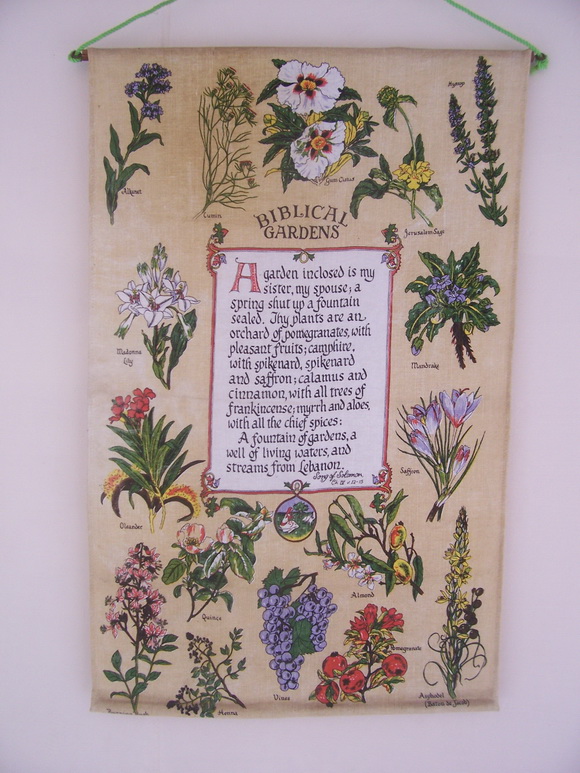 Hyssop
Alkanet
Cumin
Gum Cistus
Jerusalem Sage
BIBLICAL
GARDENS
A garden inclosed is my
sister, my spouse; a
spring shut up a fountain
sealed. Thy plants are an
orchard of pomegranates, with
pleasant fruits; camphire,
with spikenard, spikenard
and saffron; calamus and
cinnamon, with all trees of
frankincense; myrrh and aloes,
with all the chief spices:
A fountain of gardens, a
well of living waters, and
streams from Lebanon.
Song of Solomon
Madonna
Lily
Mandrake
Saffron
Oleander
Quince
Almond
Pomegranate
Vines
Henna
Asphodel